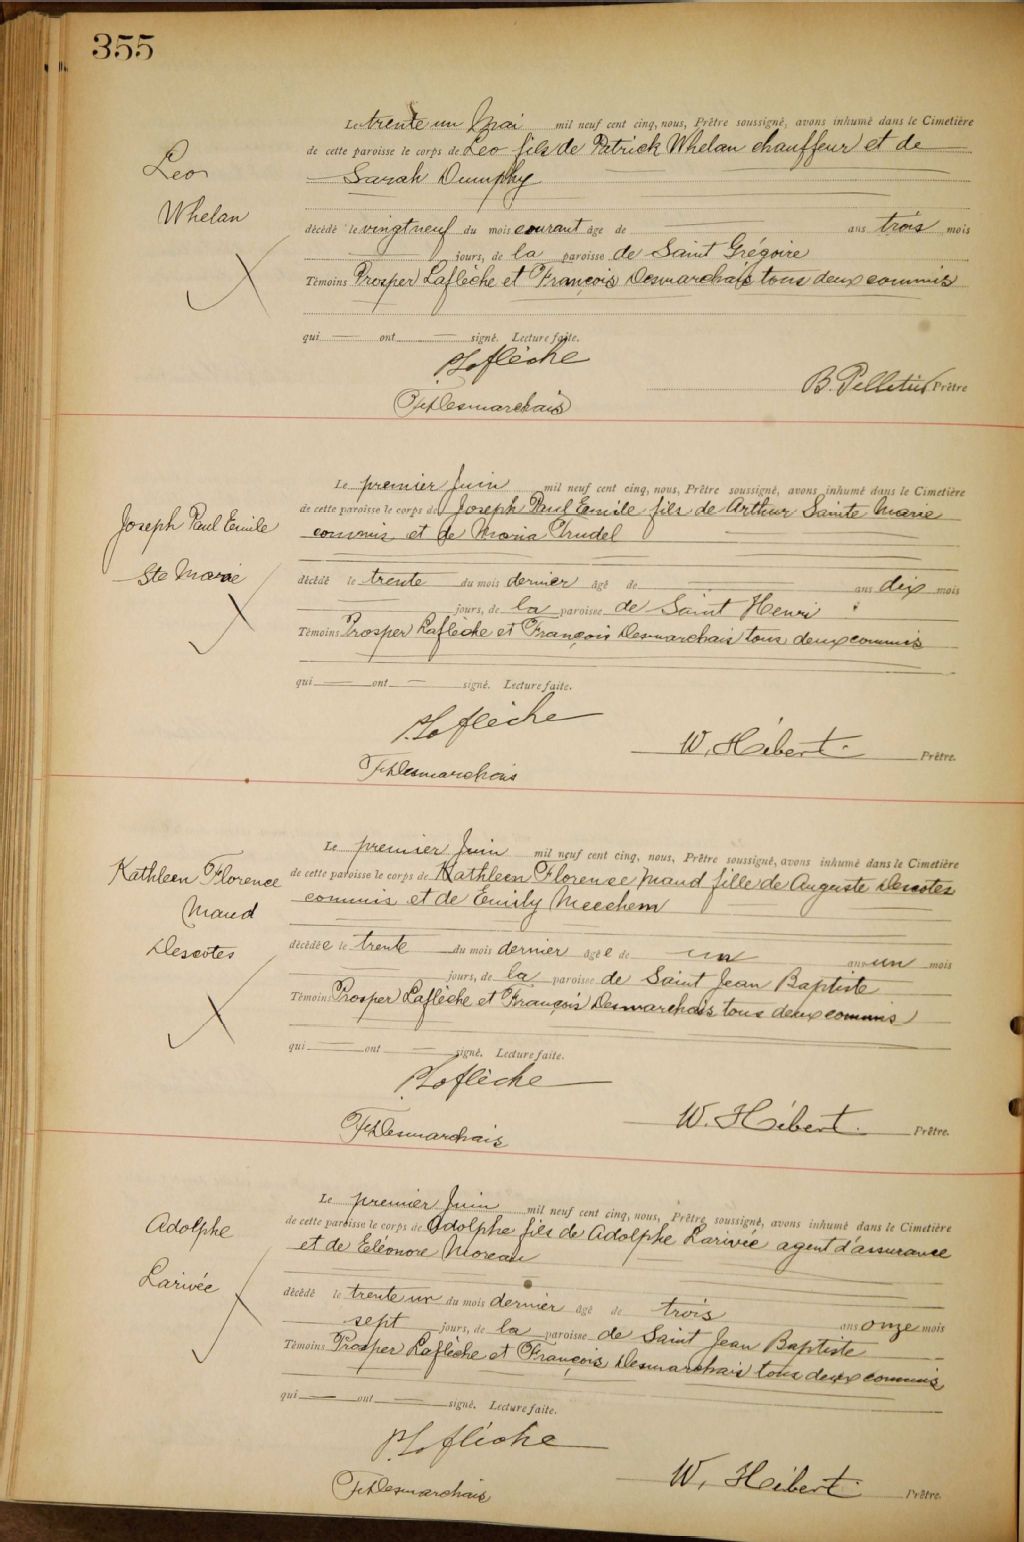 355
Le trente un Mai mil neuf cent cinq, nous, Prêtre soussigné, avons inhumé dans le Cimetière
de cette paroisse le corps de Leo fils de Patrick Whelan chauffeur et de
Sarah Dumphy
Leo
Whelan
décédé le vingt neuf du mois courant âge de ans trois mois
jours, de la paroisse de Saint Grégoire
Témoins Prosper Laflèche et François Desmarchais tous deux commis
qui ont signé. Lecture faite.
P. Laflèche
B. Pelletier Prêtre
F.X. Desmarchais
Le premier Juin mil neuf cent cinq, nous, Prêtre soussigné, avons inhumé dans le Cimetière
de cette paroisse le corps de Joseph Paul Emile fils de Arthur Sainte Marie
commis et de Maria Trudel
Joseph Paul Emile
Ste Marie
décédé le trente du mois dernier âgé de ans dix mois
jours, de la paroisse de Saint Henri
Témoins Prosper Laflèche et François Desmarchais tous deux commis
qui ont signé. Lecture faite.
P. Laflèche
W. Hébert Prêtre.
F.X. Desmarchais
Le premier Juin mil neuf cent cinq, nous, Prêtre soussigné, avons inhumé dans le Cimetière
de cette paroisse le corps de Kathleen Florence Maud fille de Auguste Descotes
commis et de Emily Meechem
Kathleen Florence
Maud
Descotes
décédée le trente du mois dernier âgée de un ans un mois
jours, de la paroisse de Saint Jean Baptiste
Témoins Prosper Laflèche et François Desmarchais tous deux commis
qui ont signé. Lecture faite.
P. Laflèche
W. Hébert Prêtre.
F.X. Desmarchais
Le premier Juin mil neuf cent cinq, nous, Prêtre soussigné, avons inhumé dans le Cimetière
de cette paroisse le corps de Adolphe fils de Adolphe Larivée agent d'assurance
et de Eléonore Moreau
Adolphe
Larivée
décédé le trente un du mois dernier âgé de trois ans onze mois
sept jours, de la paroisse de Saint Jean Baptiste
Témoins Prosper Laflèche et François Desmarchais tous deux commis
qui ont signé. Lecture faite.
P. Laflèche
W. Hébert Prêtre.
F.X. Desmarchais